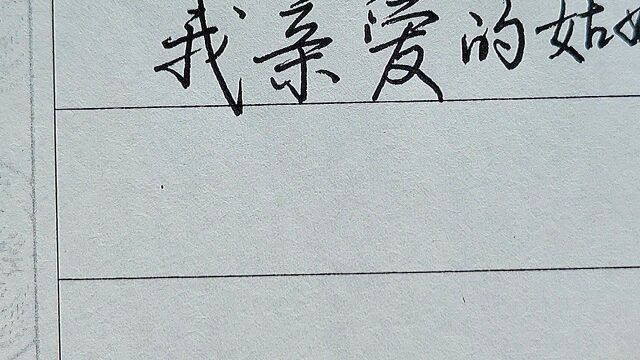 我亲爱的姑